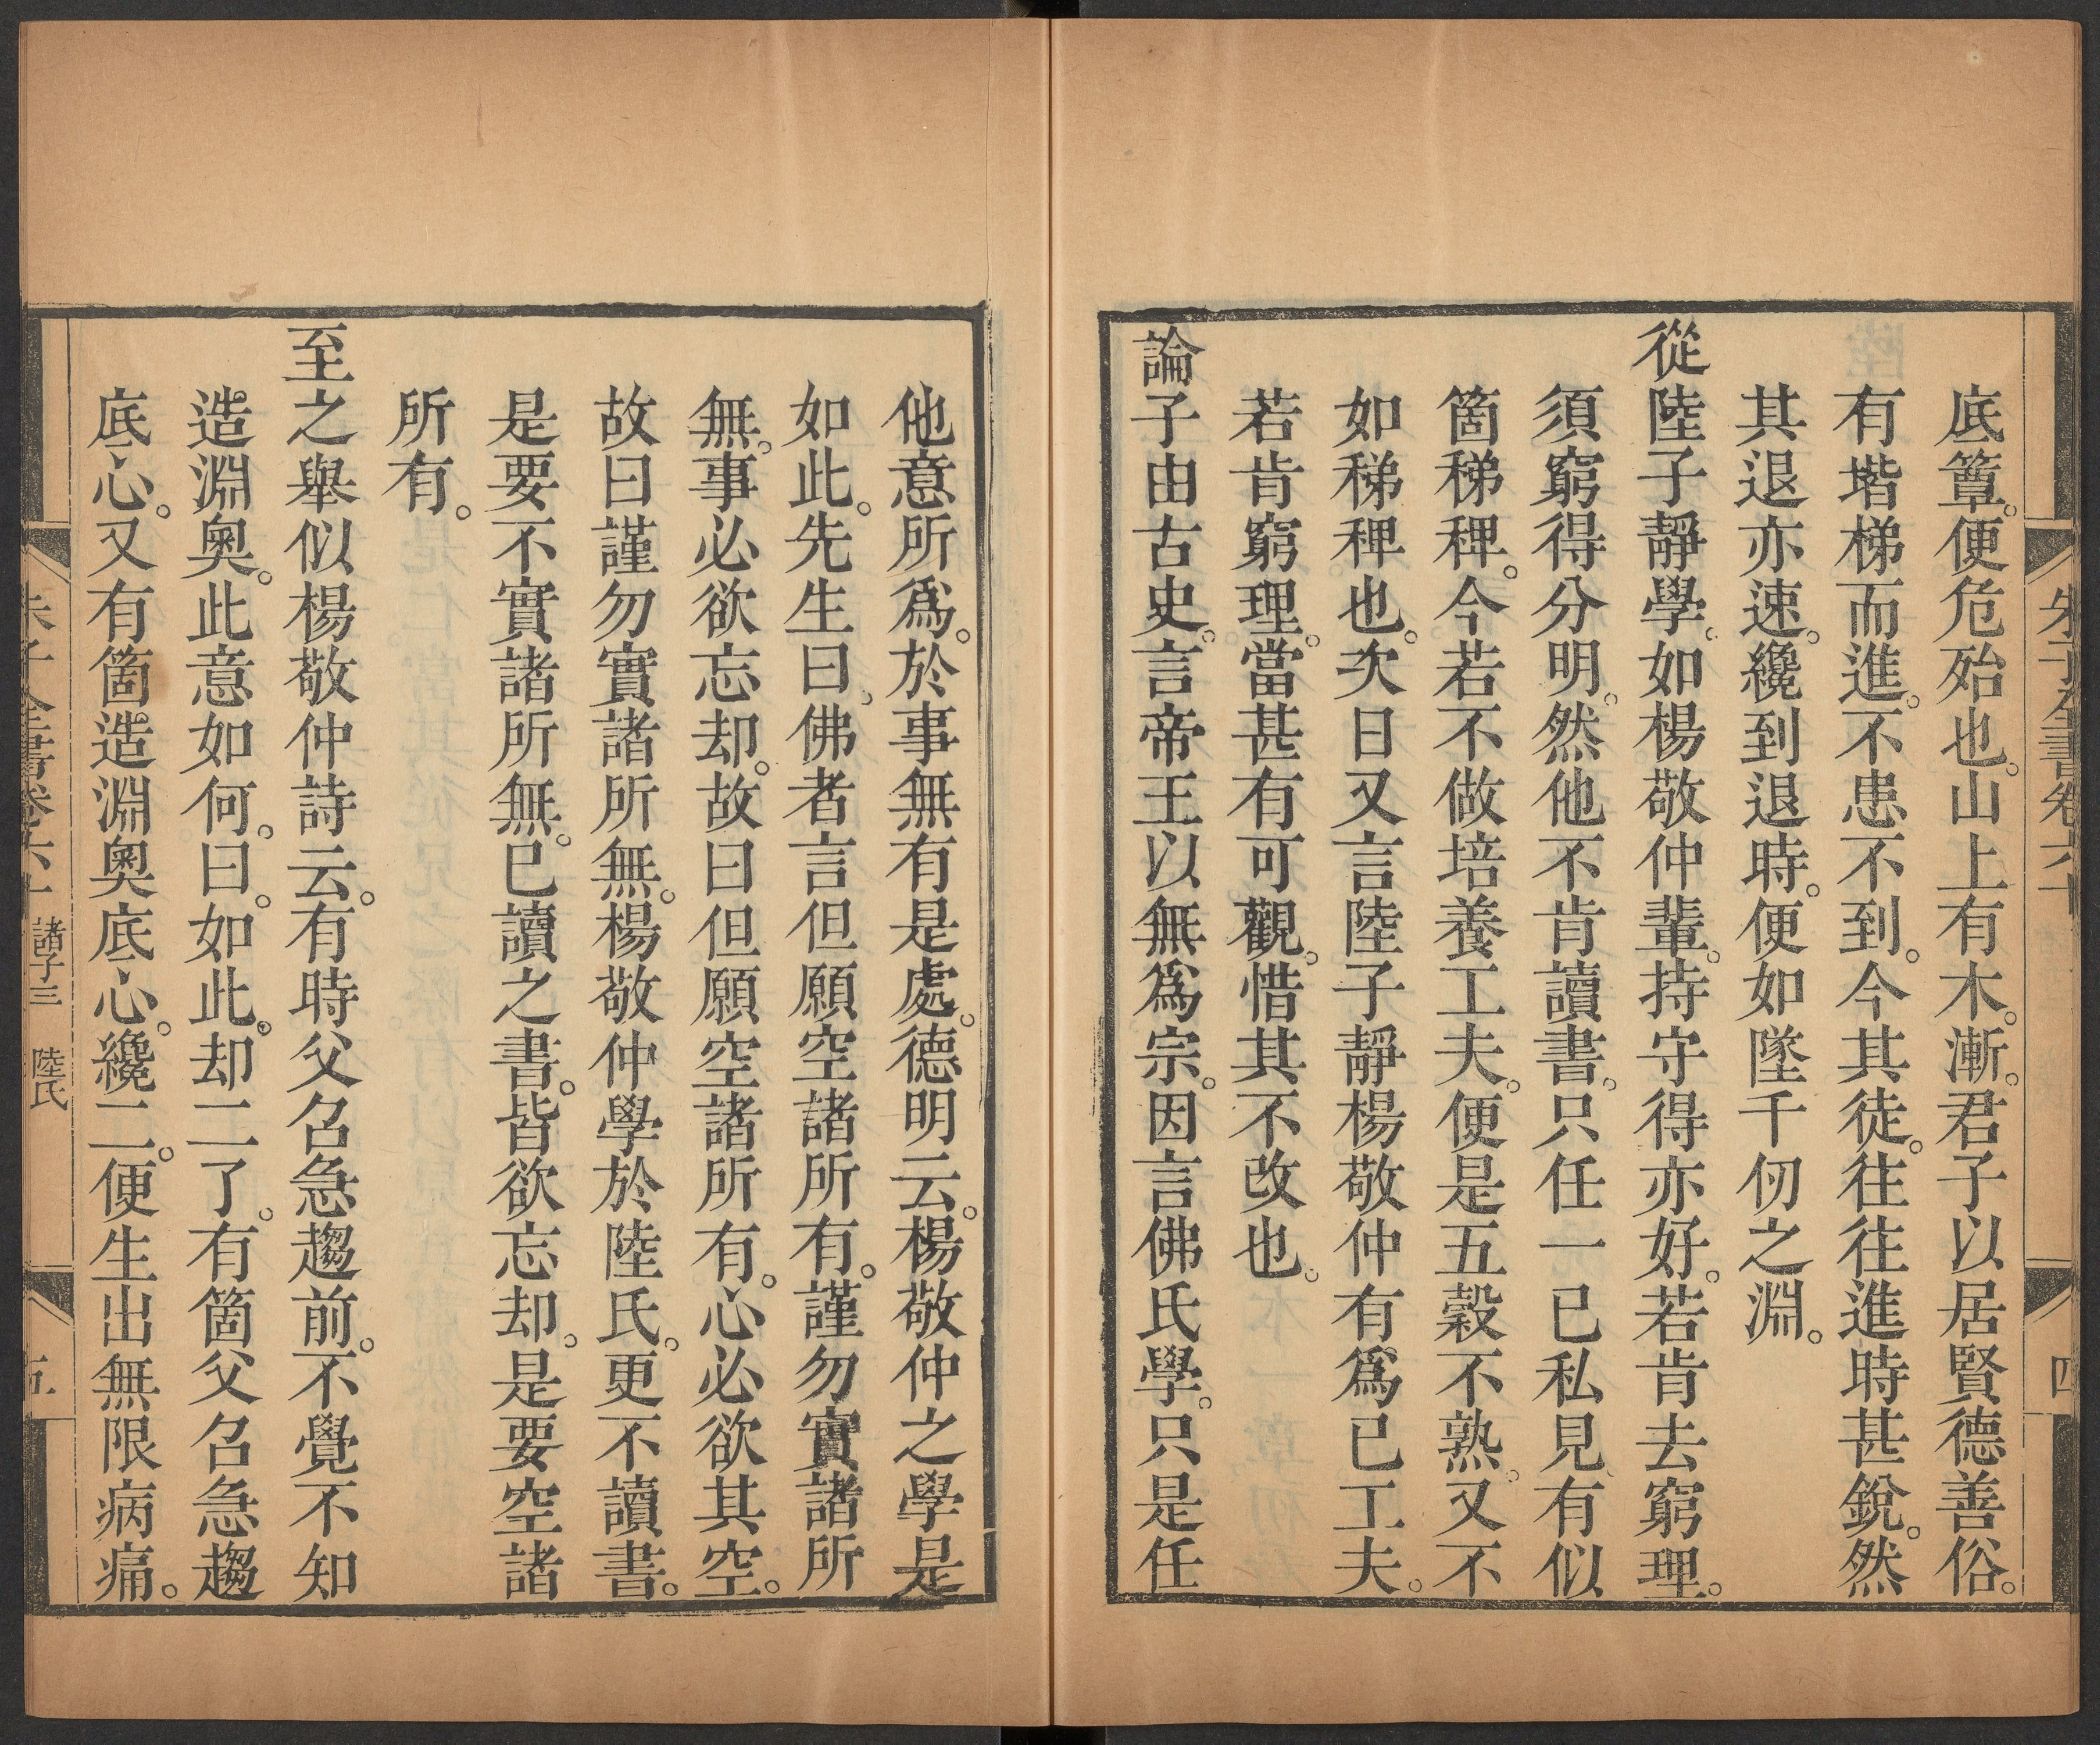 朱子全書卷六十
四
底簟。便危殆也。山上有木。漸。君子以居賢德善俗。
有堦梯而進。不患不到。今其徒。往往進時甚銳。然
其退亦速。纔到退時。便如墜千仞之淵。
從陸子靜學。如楊敬仲輩。持守得亦好。若肯去窮理。
須窮得分明。然他不肯讀書。只任一己私見。有似
箇稊稗。今若不做培養工夫。便是五穀不熟。又不
如稊稗也。次日又言陸子靜楊敬仲有爲己工夫。
若肯窮理。當甚有可觀。惜其不改也。
論子由古史。言帝王以無爲宗。因言佛氏學。只是任
他意所爲。於事無有是處。德明云。楊敬仲之學是
如此。先生曰。佛者言但願空諸所有。謹勿實諸所
無。事必欲忘却。故曰但願空諸所有。心必欲其空。
故曰謹勿實諸所無。楊敬仲學於陸氏。更不讀書。
是要不實諸所無。已讀之書。皆欲忘却。是要空諸
所有。
至之舉似楊敬仲詩云。有時父召急趨前。不覺不知
造淵奧。此意如何。曰。如此。却二了。有箇父召急趨
底心。又有箇造淵奧底心。纔二。便生出無限病痛。
朱子全書卷六十 諸子三 陸氏
五